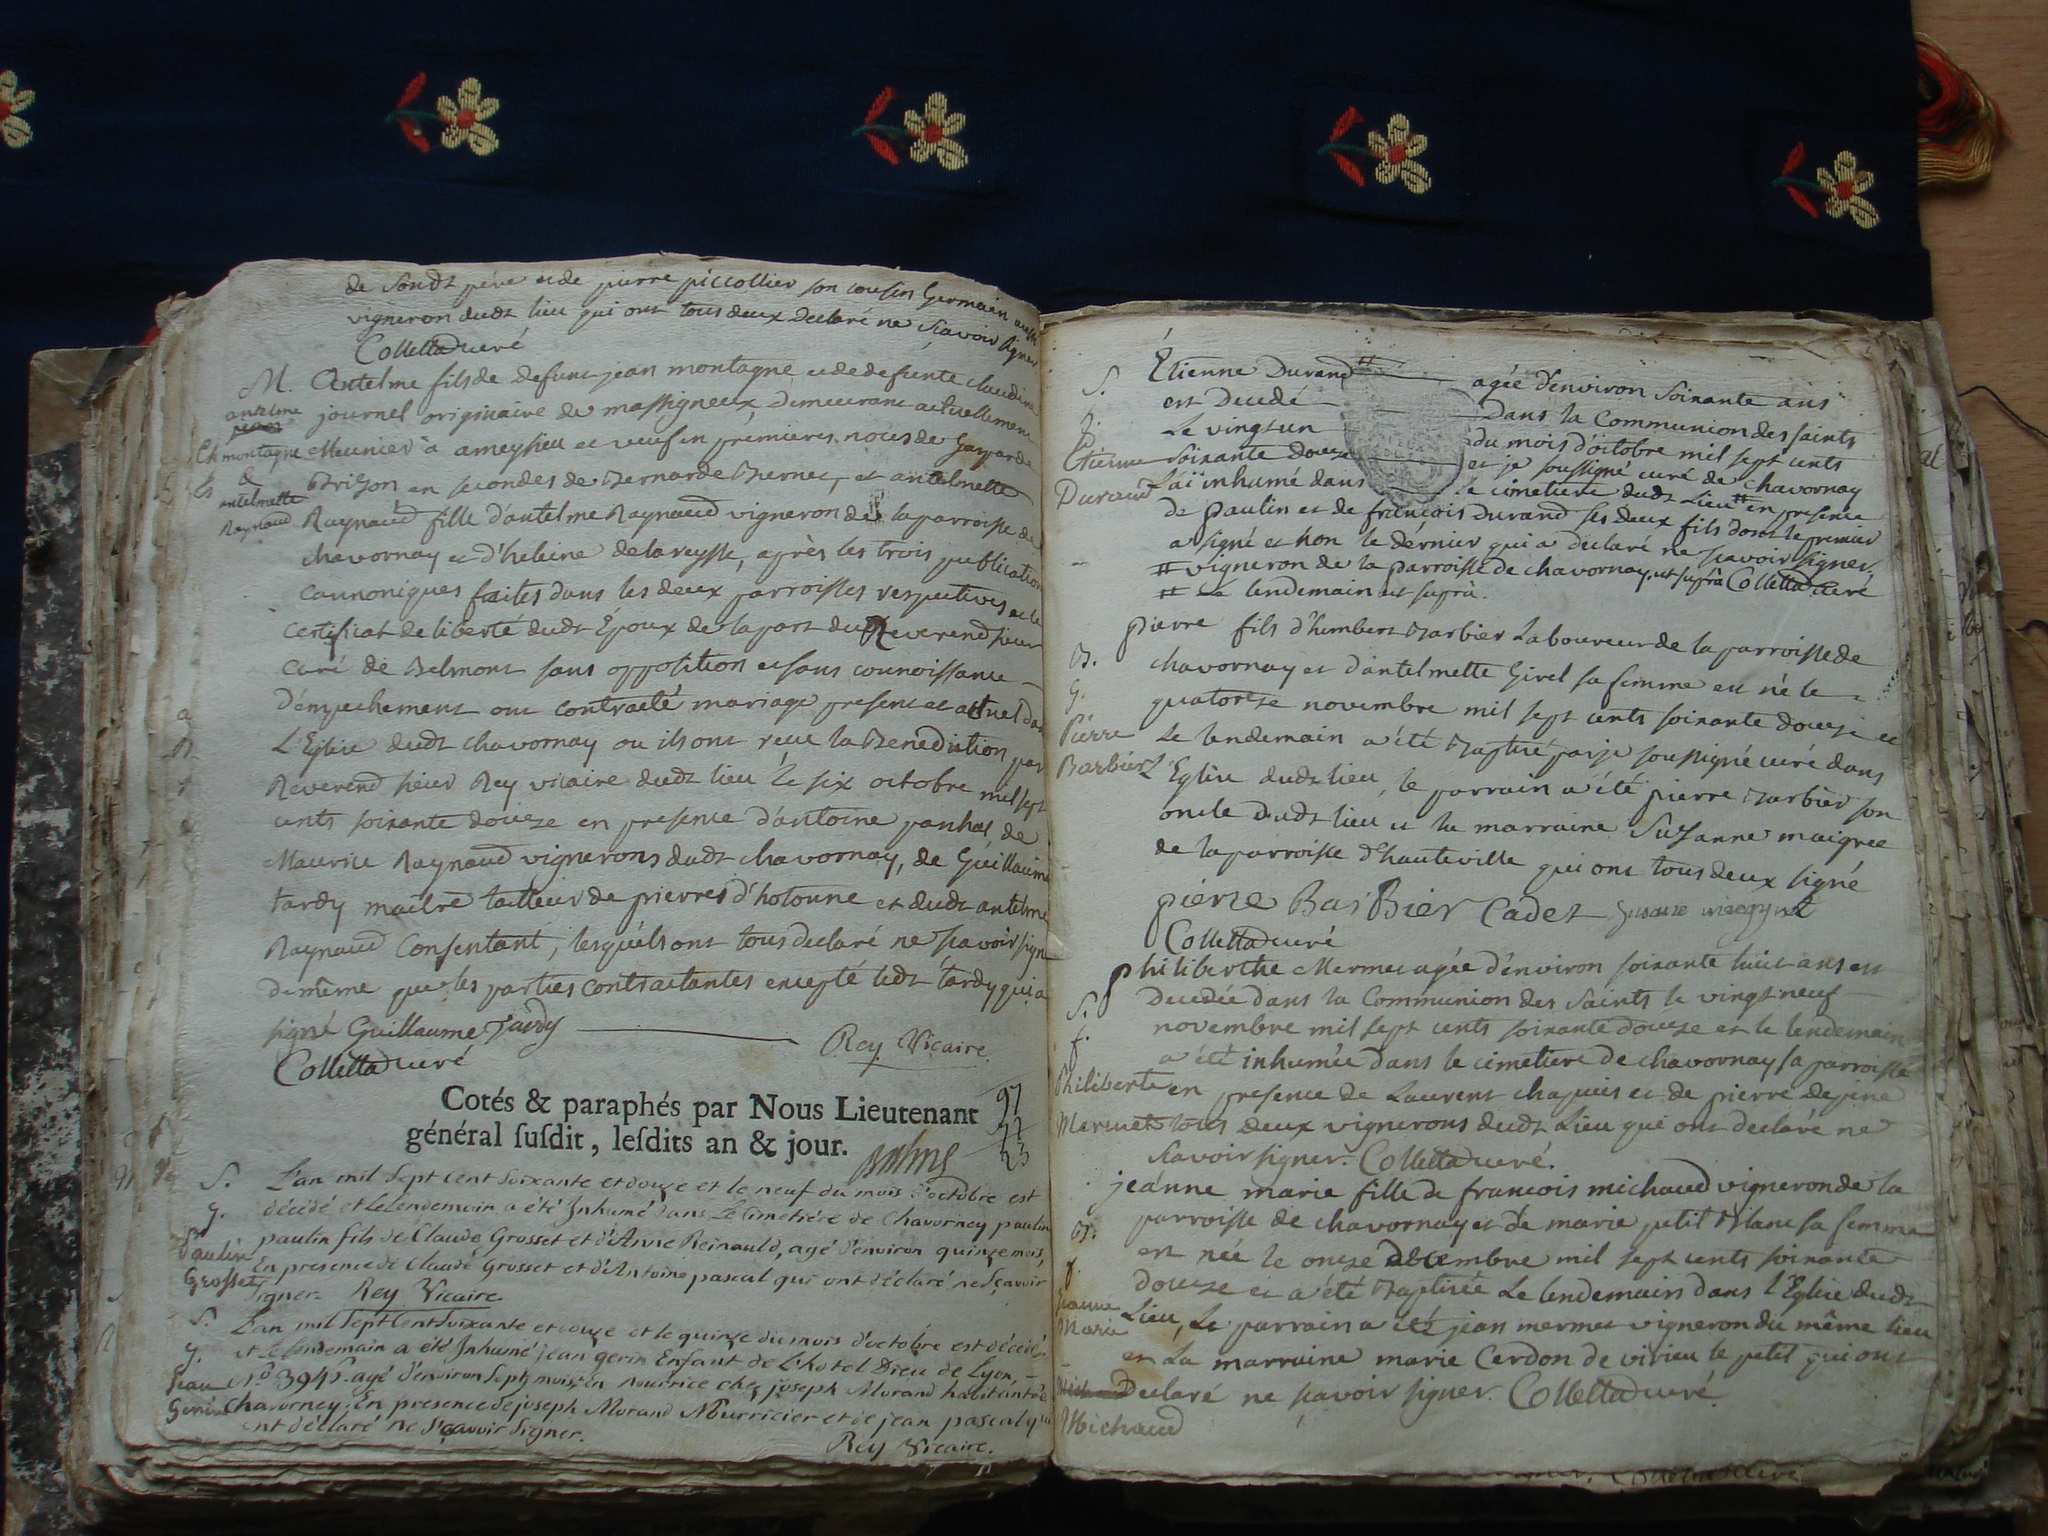 de sondt père et de pierre piccollier son cousin Germain aussi
vigneron dudt lieu qui ont tous deux declaré ne scavoir signer
Colletta curé
M. Antelme fils de defunt jean montagne et de defunte claudine
anselme journel originaire de massigneux, demeurant actuellement
montagne Meunier à ameysieu et veuf en premieres noces de Gasparde
& Brison en secondes de Bernarde Bernet, et antelmette
antelmette
Raynaud Raynaud fille d'antelme Raynaud vigneron de la parroisse de
chavornay et d'heleine delareysse, après les trois publications
cannoniques faites dans les deux parroisses respectives et le
certificat de liberté dudt Époux de la part du Reverend sieur
curé de Belmont sans opposition et sans connoissance
d'empechement ont contracté mariage present et actuel dans
L'Eglise dudt chavornay ou ils ont recu la Benediction par
Reverend sieur Rey vicaire dudt lieu le six octobre mil sept
cents soixante douze en presence d'antoine panhal de
Maurice Raynaud vignerons dudt chavornay, de Guillaume
tardy maitre tailleur de pierres d'hotonne et dudt antelme
Raynaud Consentant, lesquels ont tous declaré ne scavoir signer
de même que les parties contractantes excepté ledt tardy qui a
signé Guillaume Tardy
Rey Vicaire.
Colletta curé
Cotés & paraphés par Nous Lieutenant
général ſuſdit, leſdits an & jour.
97
S. L'an mil Sept cent Soixante et douze et le neuf du mois d'octobre est
g. décédé et Le Lendemain a été Inhumé dans Le Cimetière de Chavorney paulin
Paulin paulin fils de Claude Grosset et d'Anne Reinauld, agé d'environ quinze mois,
Grosset En presence de Claude Grosset et d'Antoine pascal qui ont déclaré ne Sçavoir
signer. Rey Vicaire
S. L'an mil Sept Cent Soixante et douze et le quinze du mois d'octobre est décédé
g. et Le Lendemain a été Inhumé jean gerin Enfant de L'hotel Dieu de Lyon,
Jean No 394 agé d'environ Sept mois en nourrice chez joseph Morand habitant de
Gerin Chavorney. En presence de joseph Morand Nourricier et de jean pascal qui
ont déclaré ne Sçavoir Signer.
Rey Vicaire.
S. Étienne Durand agée d'environ soixante ans
est decedé dans la Communion des saints
g. Le vingt un du mois d'octobre mil sept cents
Etienne soixante douze et je soussigné curé de chavornay
Durand l'ai inhumé dans le cimetiere dudt Lieu en presence
de paulin et de francois Durand ses deux fils dont le premier
a signé et non le dernier qui a declaré ne scavoir signer.
vigneron de la parroisse de chavornay, ut suprà Colletta curé
Le lendemain ut suprà.
pierre fils d'humbert Barbier Laboureur de la parroisse de
B. chavornay et d'antelmette Girel sa femme est né le
g. quatorze novembre mil sept cents soixante douze et
Pierre Le lendemain a été Baptisé par je soussigné curé dans
Barbier L'Eglise dudt lieu, le parrain a été pierre Barbier son
oncle dudt lieu et la marraine Suzanne maigree
de la parroisse d'hauteville qui ont tous deux signé
pierre BarBier Cadet
Colletta curé
philiberthe Mermet agée d'environ soixante huit ans est
S. decedée dans la Communion des Saints le vingt neuf
f. novembre mil sept cents soixante douze et le lendemain
a été inhumée dans le cimetiere de chavornay sa parroisse
Philiberte en presence de Laurent chapuis et de pierre dejeine
Mermet tous deux vignerons dudt Lieu qui ont declaré ne
scavoir signer. Colletta curé.
jeanne marie fille de francois michaud vigneron de la
B. parroisse de chavornay et de marie petit Blanc sa femme
est née le onze decembre mil sept cents soixante
f. douze et a été Baptisée Le lendemain dans l'Eglise dudt
Jeanne
Marie Lieu, Le parrain a été jean mermet vigneron du même lieu
et La marraine marie Cerdon de virieu le petit qui ont
declaré ne scavoir signer. Colletta curé.
Michaud